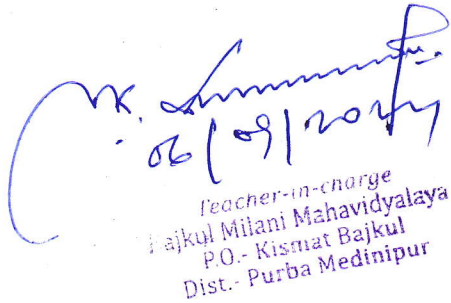 06/09/2024
Teacher-in-charge
Bajkul Milani Mahavidyalaya
P.O.- Kismat Bajkul
Dist.- Purba Medinipur